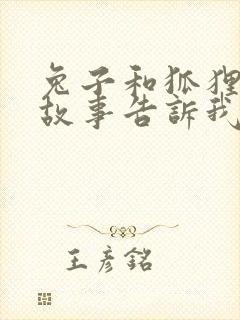 兔子和狐狸
故事告訴我
王彥銘